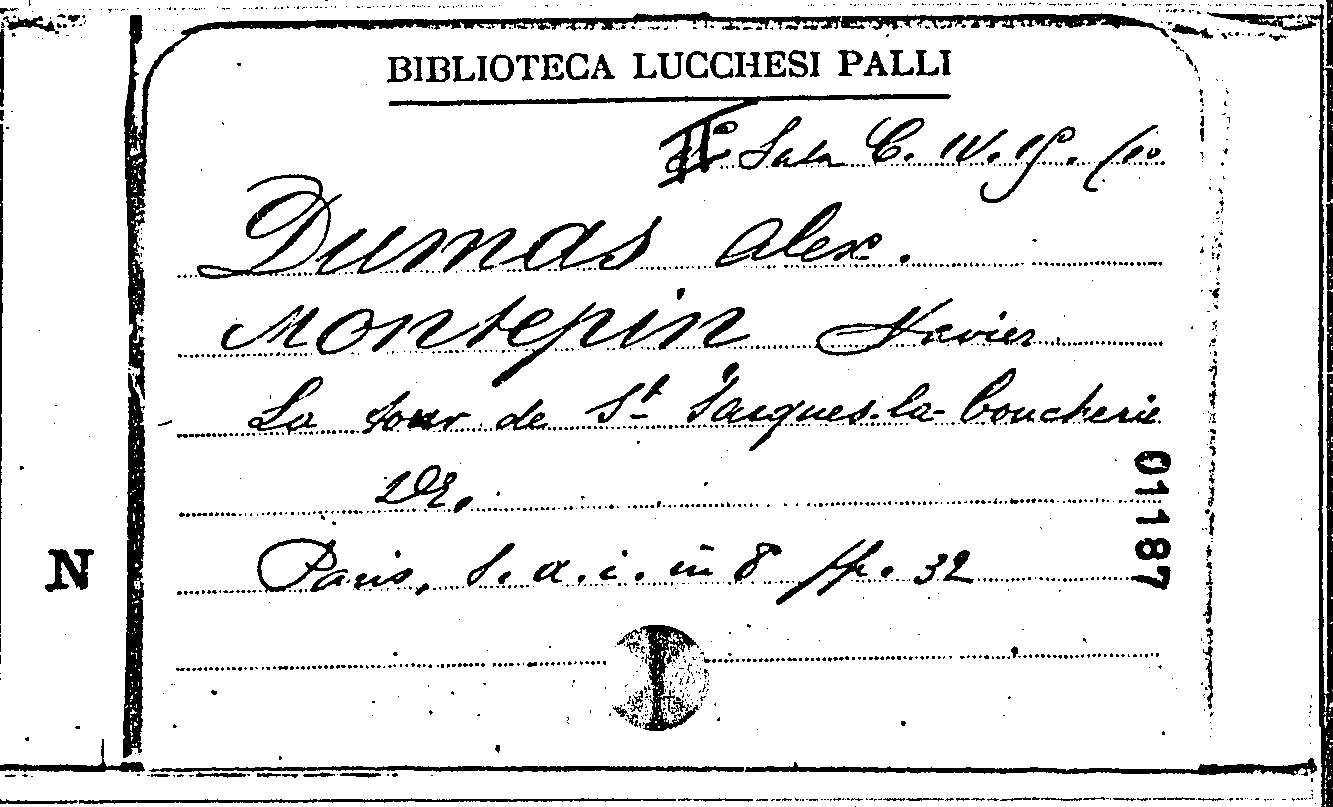 BIBLIOTECA LUCCHESI PALLI
IIª Sala C. IV. 19. (10
Dumas Alex.
Montepin Xavier
La tour de St. Jacques-la-boucherie
Dr.
Paris, s. a. i. in 8 pp. 32
01187
N